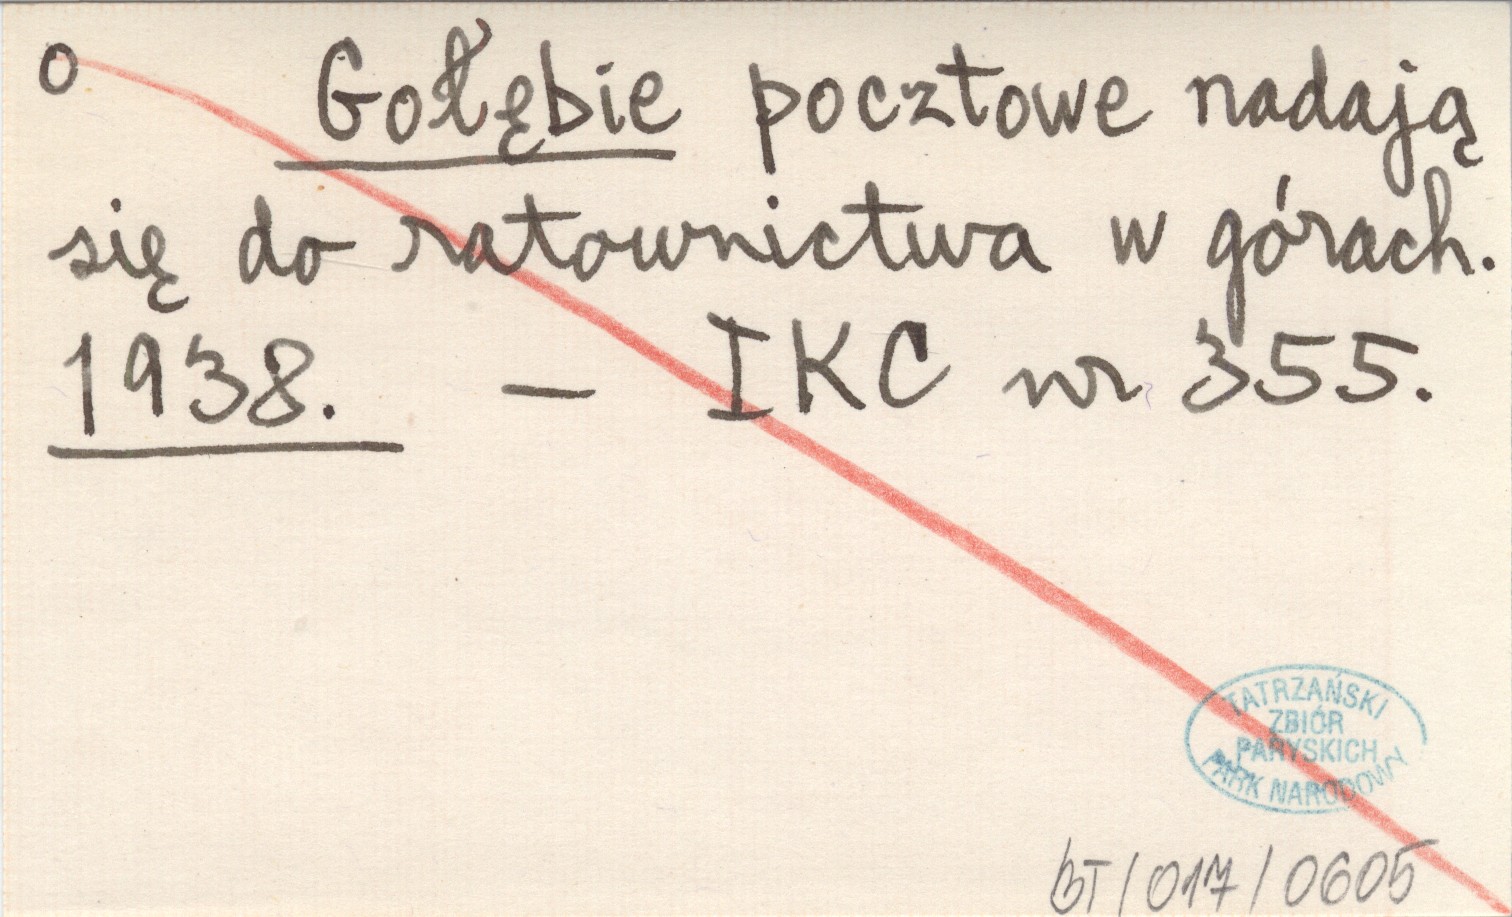 o Gołębie pocztowe nadają
się do ratownictwa w górach.
1938. — IKC nr 355.
TATRZAŃSKI
ZBIÓR
PARYSKICH
PARK NARODOWY
BT/017/0605